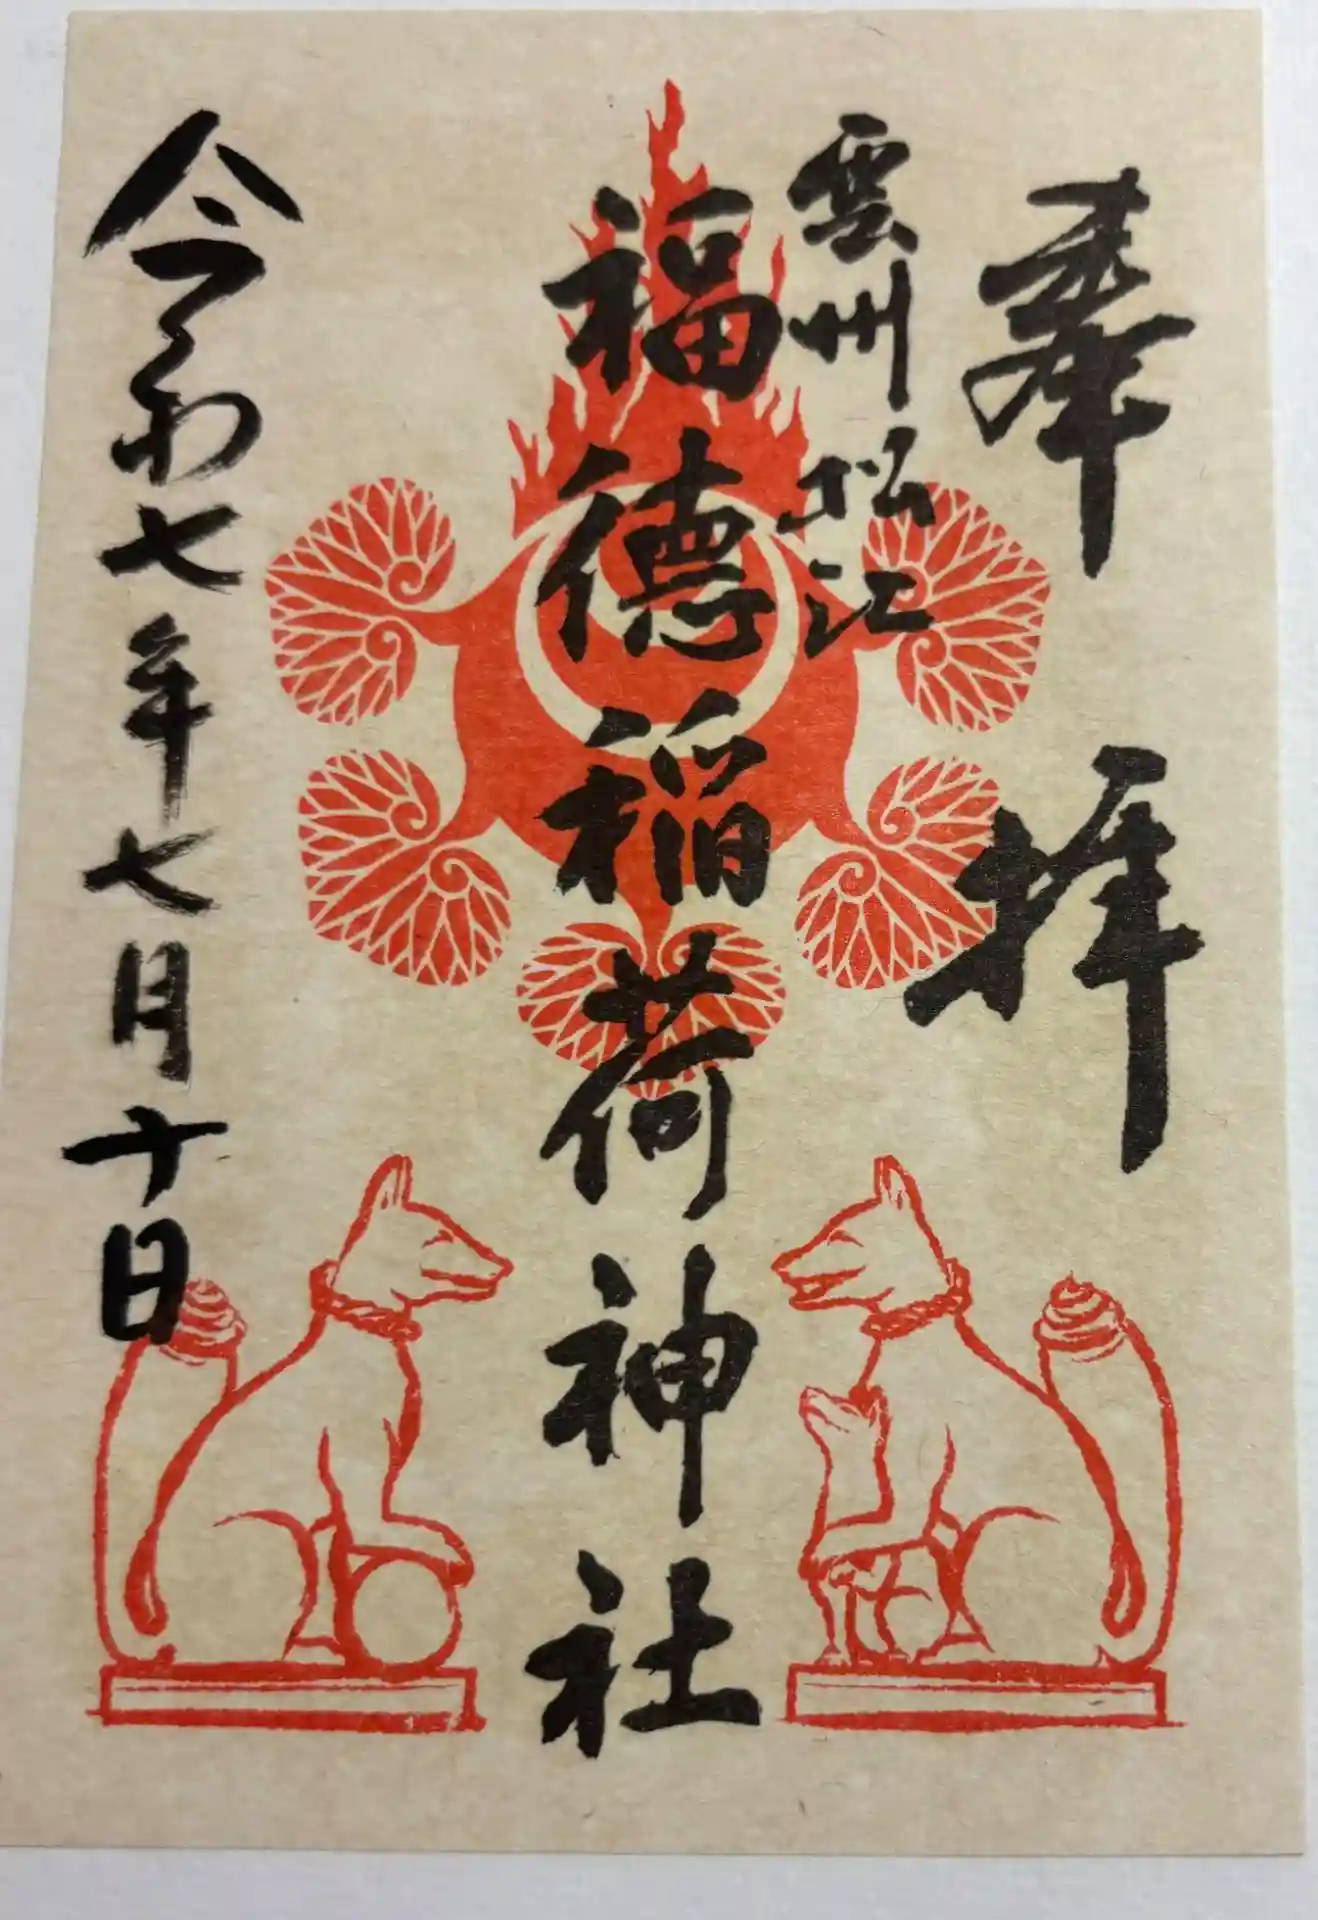 奉拝
雲州松江
福徳稲荷神社
令和七年七月十日